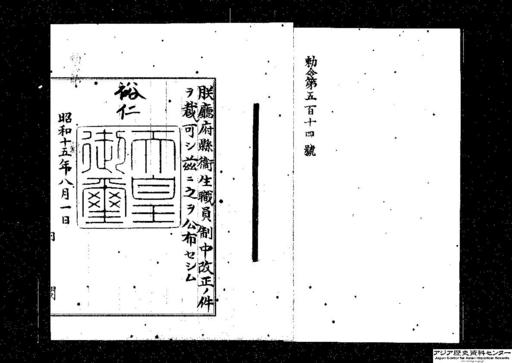 勅令第五百十四號
朕廳府縣衞生職員制中改正ノ件
ヲ裁可シ茲ニ之ヲ公布セシム
裕仁
天皇
御璽
昭和十五年八月一日
アジア歴史資料センター
Japan Center for Asian Historical Records